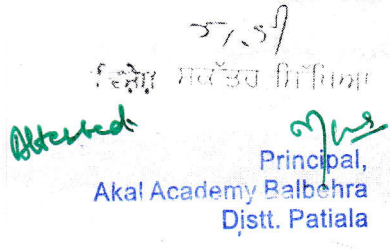 ਸਹੀ/-
ਵਿਸ਼ੇਸ਼ ਸਕੱਤਰ ਸਿੱਖਿਆ
Attested
Principal,
Akal Academy Balbehra
Distt. Patiala